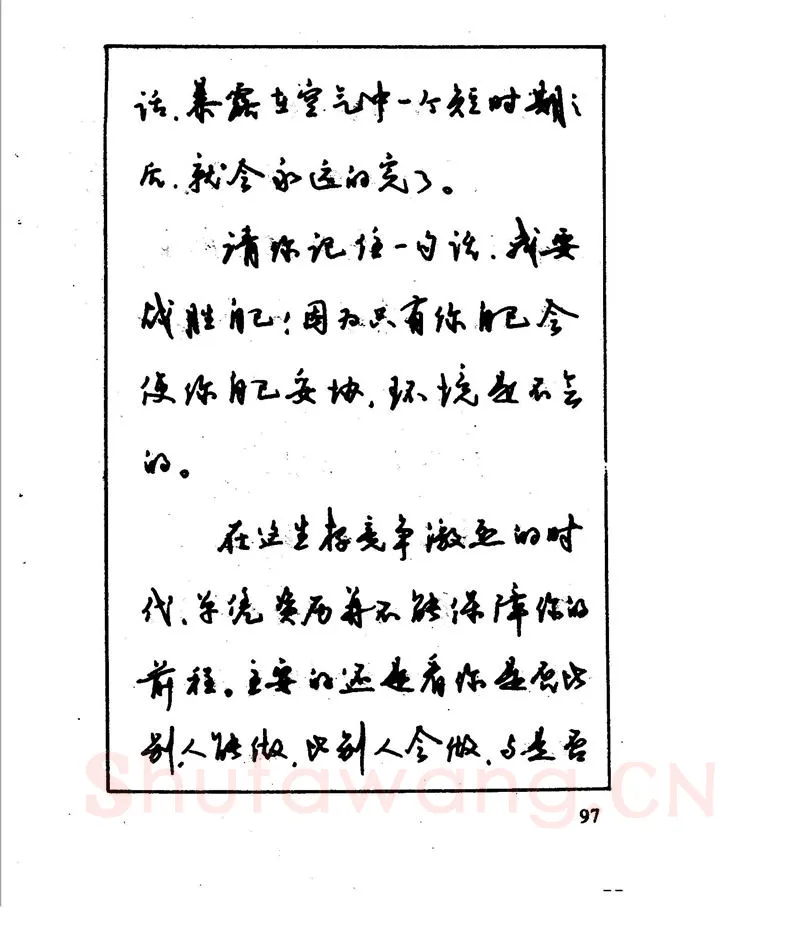 话,暴露在空气中一个短时期之
后,就会永远的完了。
请你记住一句话,我要
战胜自己!因为只有你自己会
使你自己妥协,环境是不会
的。
在这生存竞争激烈的时
代,单凭资历并不能保障你的
前程。主要的还是看你是否比
别人能做,比别人会做,与是否
97
Shufawang.CN